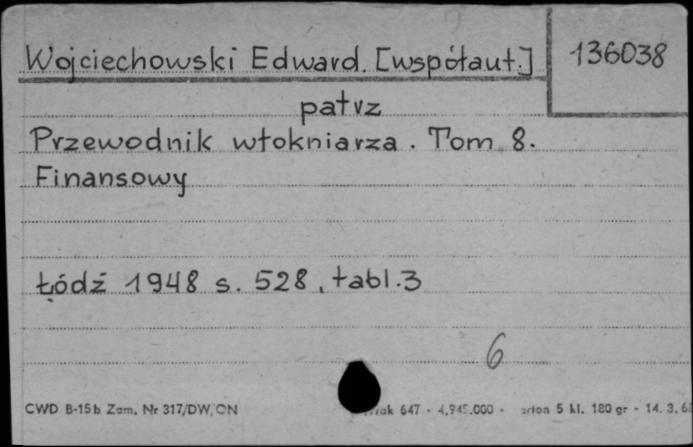 Wojciechowski Edward. [współaut.] 136038
patrz
Przewodnik włokniarza. Tom 8.
Finansowy
Łódź 1948 s. 528, tabl. 3
6
CWD B-15b Zam. Nr 317/DW, CN 647 - 4.945.000 - 5 kl. 180 gr - 14. 3.